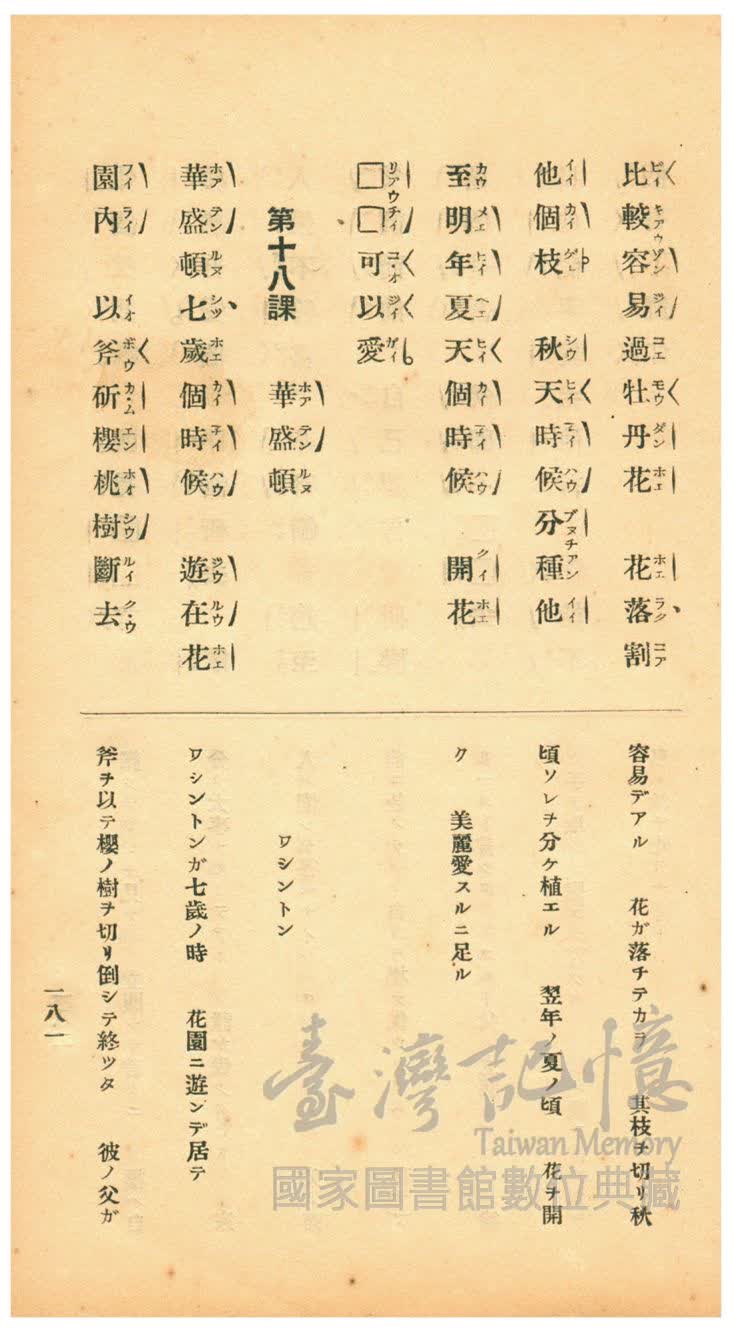 比較容易過牡丹花 花落割
他個枝 秋天時候分種他
至明年夏天個時候 開花
□□可以愛
第十八課 華盛頓
華盛頓七歲個時候 遊在花
園內 以斧斫櫻桃樹斷去
容易デアル 花ガ落チテカラ 其枝ヲ切リ秋
頃ソレヲ分ケ植エル 翌年ノ夏ノ頃 花ヲ開
ク 美麗愛スルニ足ル
ワシントン
ワシントンガ七歲ノ時 花園ニ遊ンデ居テ
斧ヲ以テ櫻ノ樹ヲ切リ倒シテ終ツタ 彼ノ父ガ
一八一
臺灣記憶
Taiwan Memory
國家圖書館數位典藏